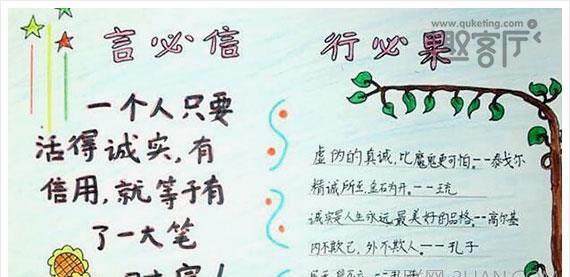 www.quketing.com
趣客厅
言必信 行必果
一个人只要
活得诚实,有
信用,就等于有
了一大笔
虚伪的真诚,比魔鬼更可怕。--泰戈尔
精诚所至,金石为开。---王充
诚实是人生永远最美好的品格。--高尔基
内不欺己,外不欺人。---孔子